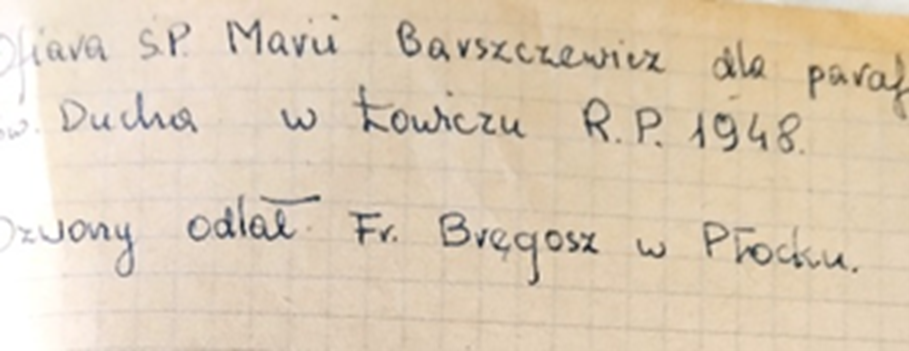 Ofiara ŚP. Marii Barszczewicz dla paraf
św. Ducha w Łowiczu R.P. 1948.
Dzwony odlał Fr. Bręgosz w Płocku.